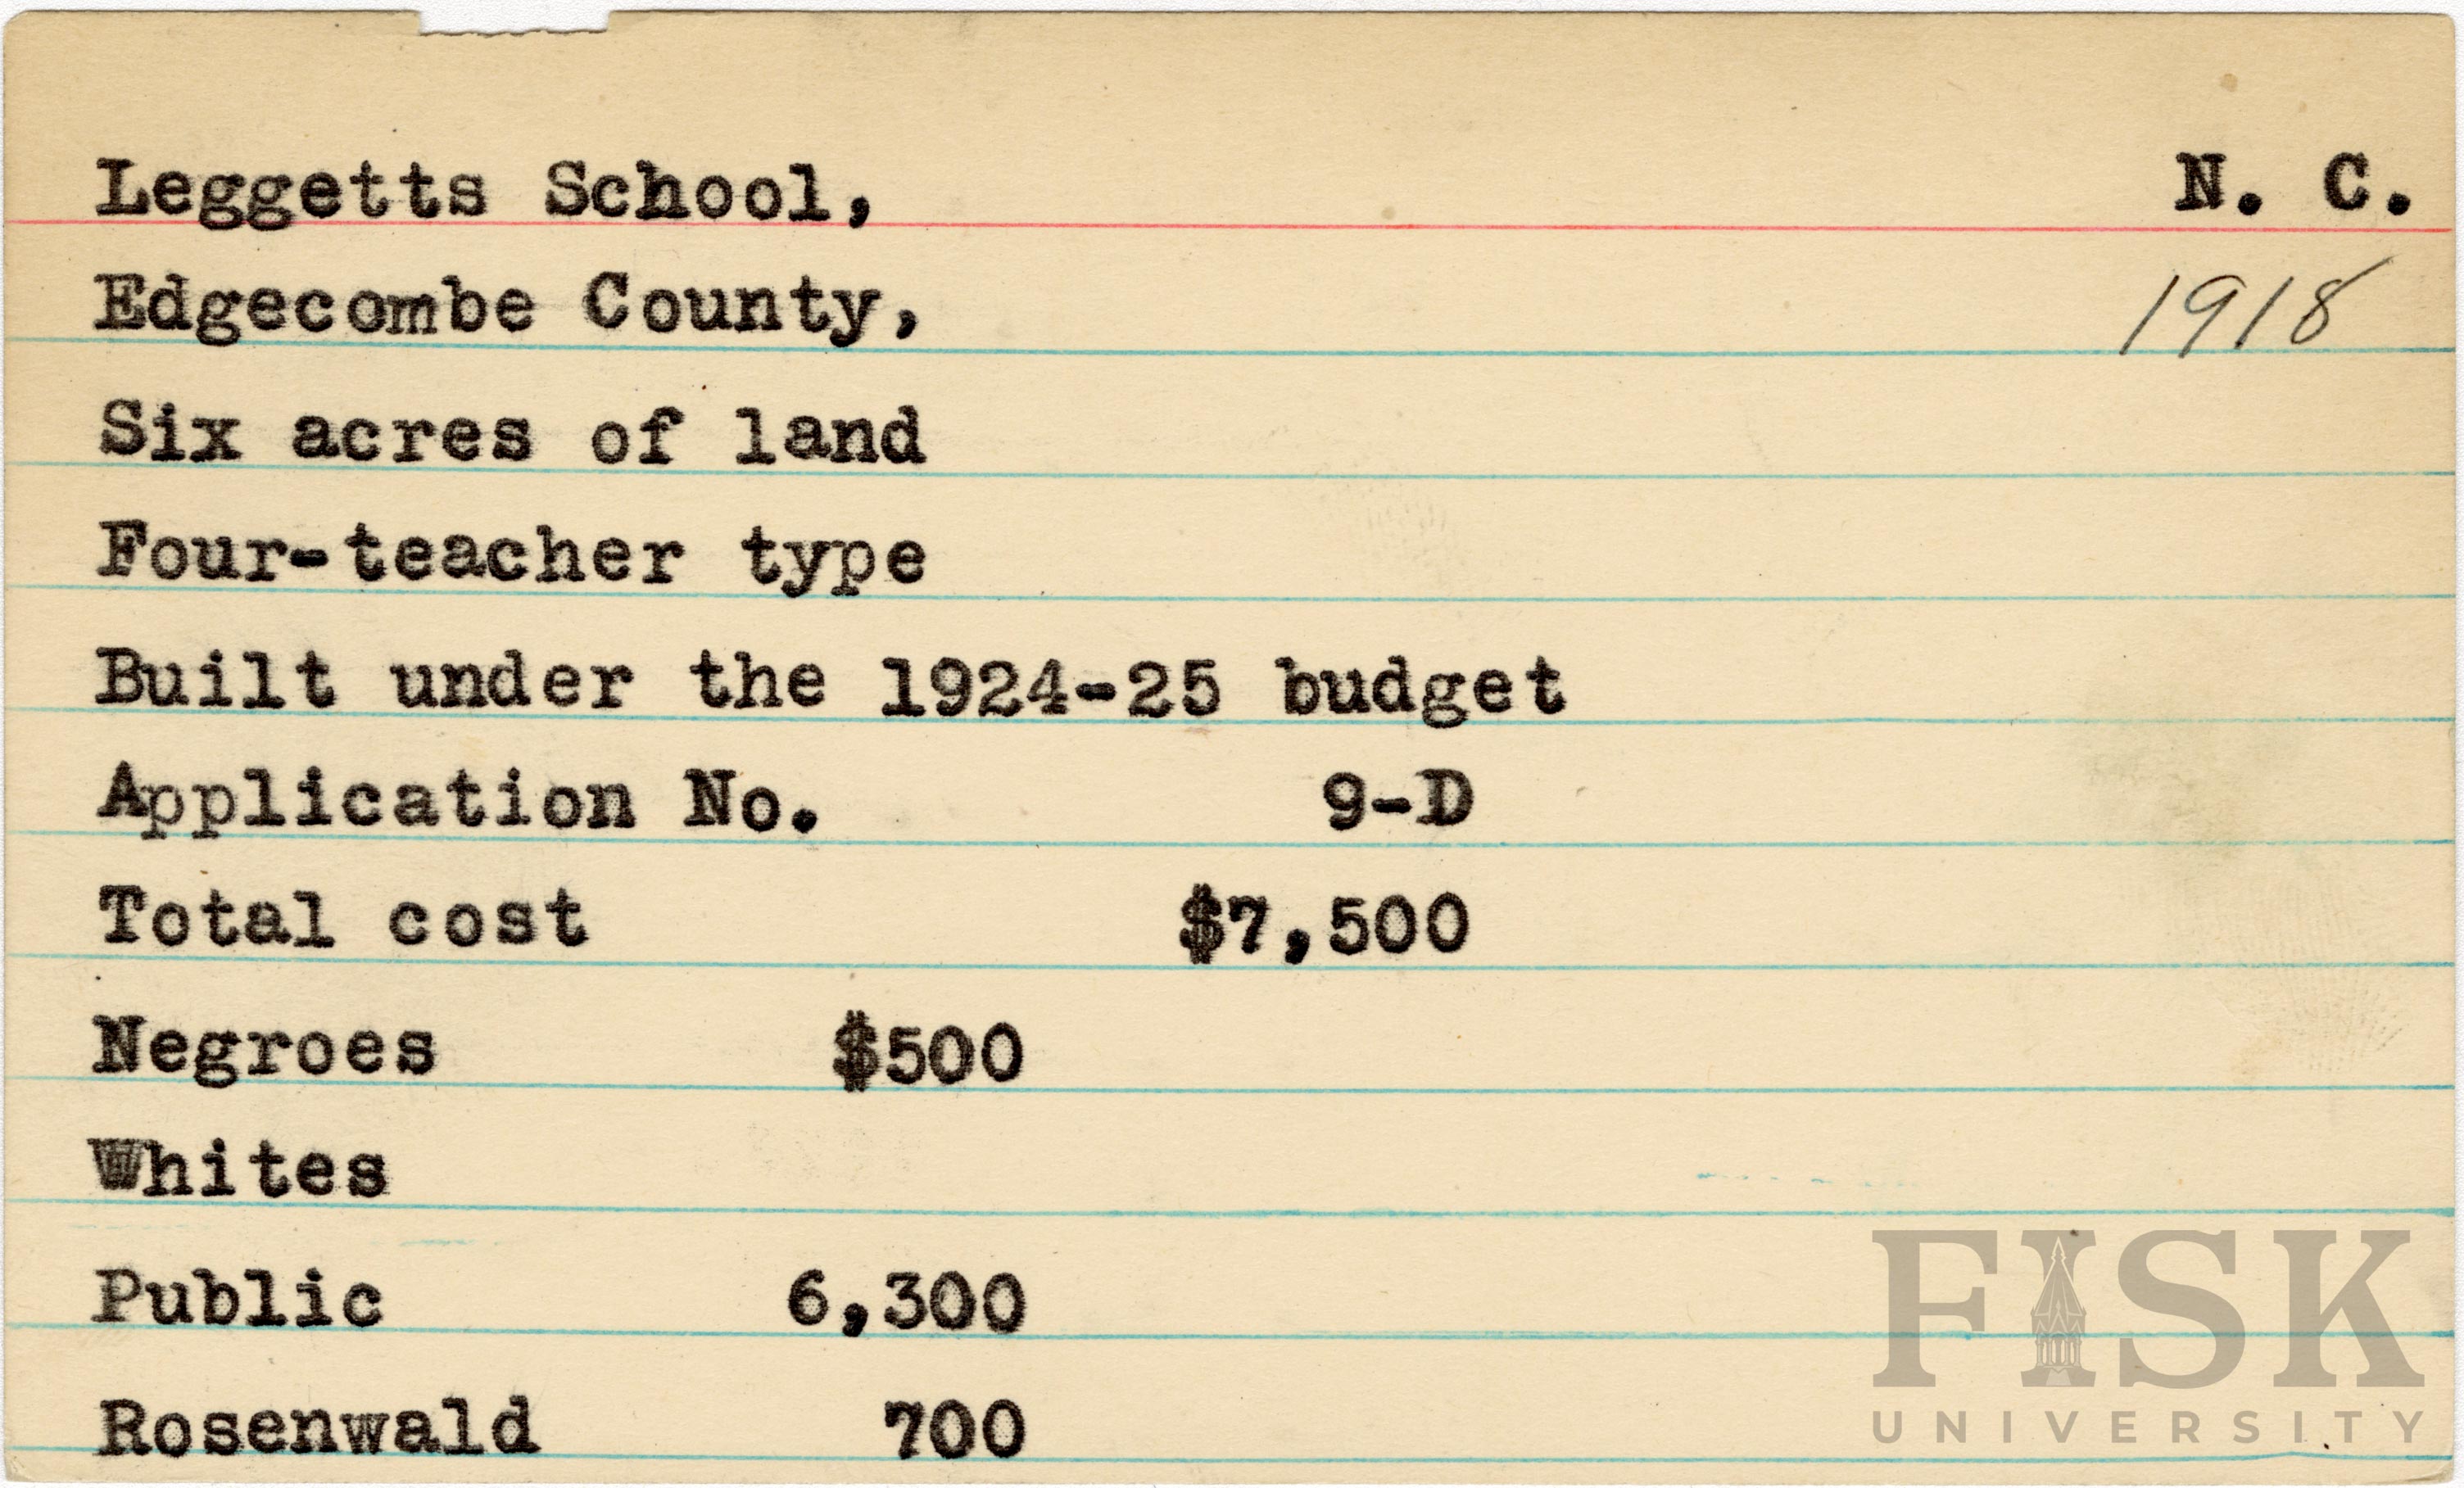 Leggetts School, N. C.
Edgecombe County, 1918
Six acres of land
Four-teacher type
Built under the 1924-25 budget
Application No. 9-D
Total cost $7,500
Negroes $500
Whites
Public 6,300
Rosenwald 700
FISK
UNIVERSITY